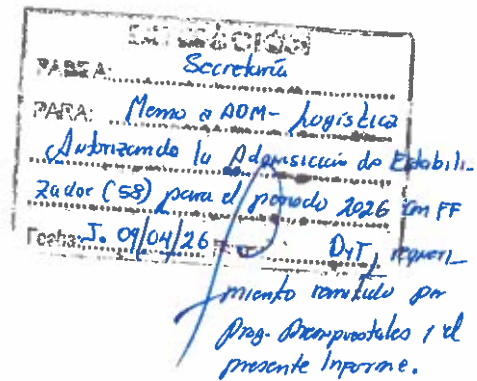 PASE A: Secretaría
PARA: Memo a ADM- Logística
Autorizando la Adquisición de Estabili-
zador (58) para el periodo 2026 con FF
Fecha: J. 09/04/26 DyT, requeri_
miento remitido por
Prog. Presupuestales y el
presente Informe.